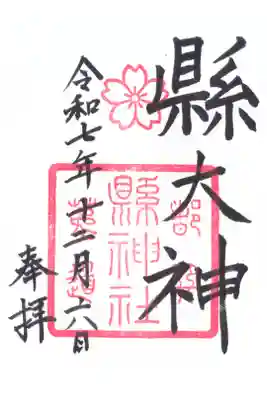 縣大神
縣神社
令和七年十二月十八日
奉拝